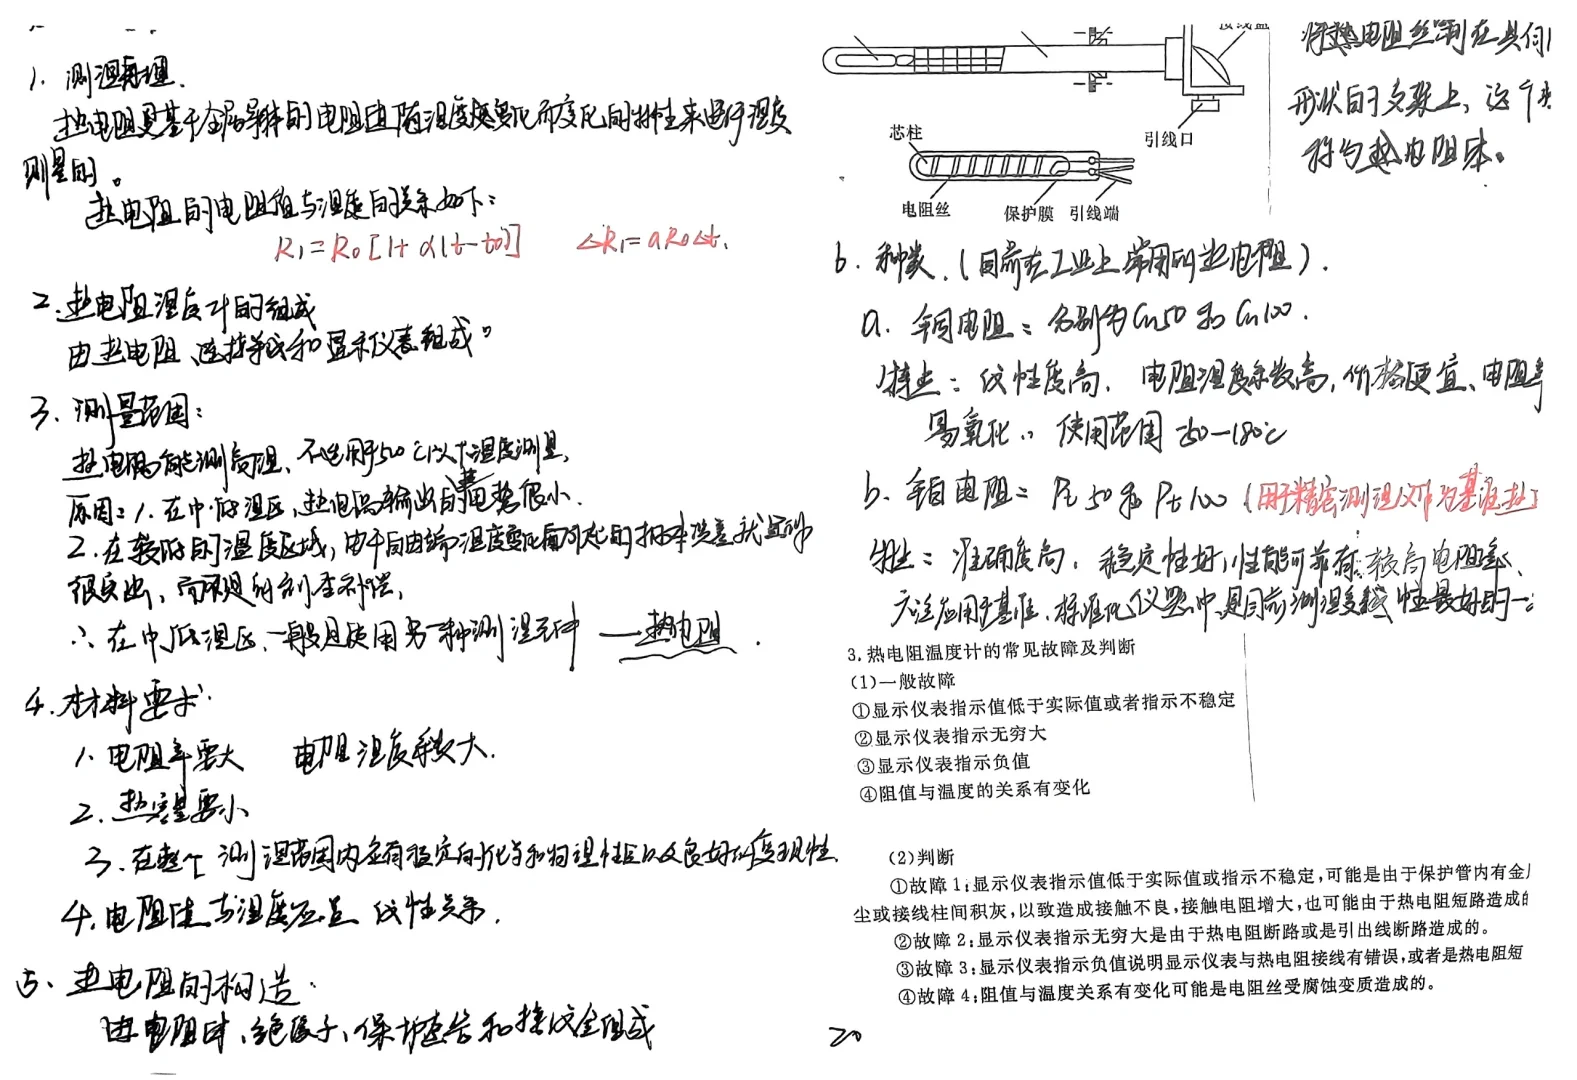 1. 测温原理.
热电阻是基于金属导体的电阻值随温度变化而变化的特性来进行温度
测量的。
热电阻的电阻值与温度的关系如下:
R₁=R₀[1+α(t-t₀)] △R₁=αR₀△t.
2. 热电阻温度计的组成
由热电阻、连接导线和显示仪表组成。
3. 测量范围:
热电偶能测高温、不适用于500℃以下温度测量,
原因: 1. 在中低温区,热电偶输出的热电势很小.
2. 在较低的温度区域,由于自由端温度变化而引起的相对误差就显得
很突出,而且得到补偿,
∴在中低温区,一般是使用另一种测温元件——热电阻.
4. 材料要求.
1. 电阻率要大 电阻温度系数大.
2. 热容量要小
3. 在整个测温范围内应有稳定的化学和物理性质以及良好的复现性.
4. 电阻值与温度应呈线性关系.
5. 热电阻的构造.
由电阻体、绝缘子、保护套管和接线盒组成
接线盒
引线口
芯柱
电阻丝 保护膜 引线端
将热电阻丝绕制在具有
形状的支架上,这个
称为热电阻体。
6. 种类.(目前在工业上常用的热电阻).
a. 铜电阻: 分别为Cu50和Cu100.
特点: 线性度高, 电阻温度系数高,价格便宜、电阻率
易氧化. 使用范围-50—180℃
b. 铂电阻: Pt50和Pt100(用于精密测温以作为基准热
特点: 准确度高,稳定性好,性能可靠有较高电阻率、
广泛应用于基准、标准化仪器中,是目前测温复线性最好的一
3.热电阻温度计的常见故障及判断
(1)一般故障
①显示仪表指示值低于实际值或者指示不稳定
②显示仪表指示无穷大
③显示仪表指示负值
④阻值与温度的关系有变化
(2)判断
①故障1:显示仪表指示值低于实际值或指示不稳定,可能是由于保护管内有金
尘或接线柱间积灰,以致造成接触不良,接触电阻增大,也可能由于热电阻短路造成的
②故障2:显示仪表指示无穷大是由于热电阻断路或是引出线断路造成的。
③故障3:显示仪表指示负值说明显示仪表与热电阻接线有错误,或者是热电阻短
④故障4:阻值与温度关系有变化可能是电阻丝受腐蚀变质造成的。
20